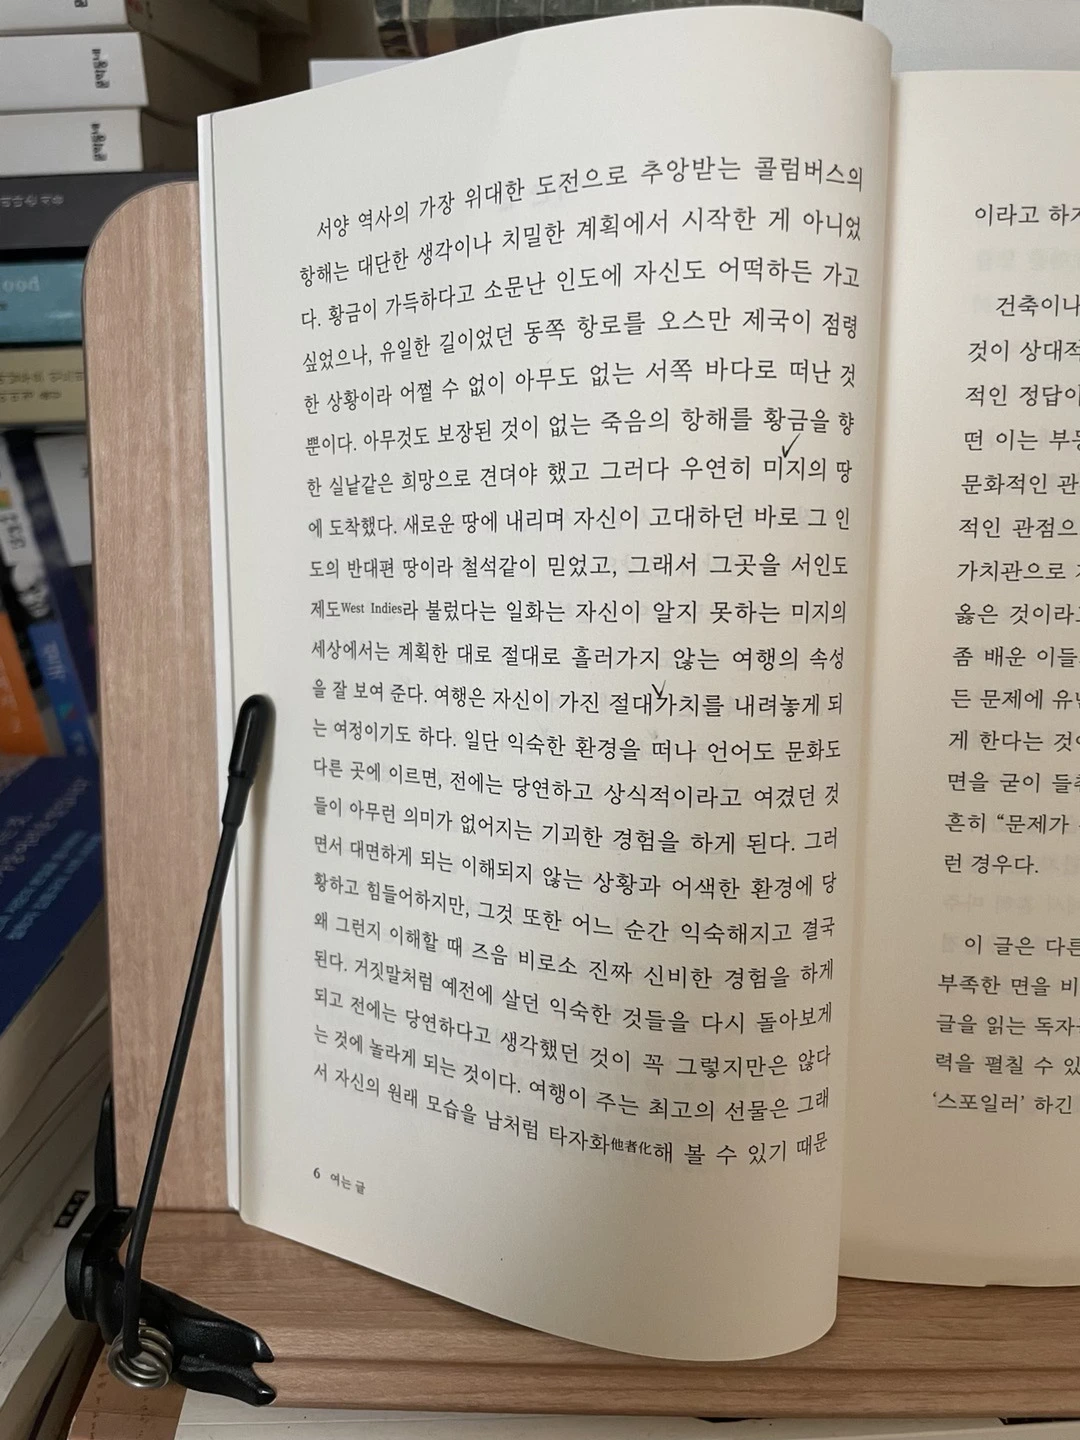 서양 역사의 가장 위대한 도전으로 추앙받는 콜럼버스의
항해는 대단한 생각이나 치밀한 계획에서 시작한 게 아니었
다. 황금이 가득하다고 소문난 인도에 자신도 어떡하든 가고
싶었으나, 유일한 길이었던 동쪽 항로를 오스만 제국이 점령
한 상황이라 어쩔 수 없이 아무도 없는 서쪽 바다로 떠난 것
뿐이다. 아무것도 보장된 것이 없는 죽음의 항해를 황금을 향
한 실낱같은 희망으로 견뎌야 했고 그러다 우연히 미지의 땅
에 도착했다. 새로운 땅에 내리며 자신이 고대하던 바로 그 인
도의 반대편 땅이라 철석같이 믿었고, 그래서 그곳을 서인도
제도West Indies라 불렀다는 일화는 자신이 알지 못하는 미지의
세상에서는 계획한 대로 절대로 흘러가지 않는 여행의 속성
을 잘 보여 준다. 여행은 자신이 가진 절대가치를 내려놓게 되
는 여정이기도 하다. 일단 익숙한 환경을 떠나 언어도 문화도
다른 곳에 이르면, 전에는 당연하고 상식적이라고 여겼던 것
들이 아무런 의미가 없어지는 기괴한 경험을 하게 된다. 그러
면서 대면하게 되는 이해되지 않는 상황과 어색한 환경에 당
황하고 힘들어하지만, 그것 또한 어느 순간 익숙해지고 결국
왜 그런지 이해할 때 즈음 비로소 진짜 신비한 경험을 하게
된다. 거짓말처럼 예전에 살던 익숙한 것들을 다시 돌아보게
되고 전에는 당연하다고 생각했던 것이 꼭 그렇지만은 않다
는 것에 놀라게 되는 것이다. 여행이 주는 최고의 선물은 그래
서 자신의 원래 모습을 남처럼 타자화他者化해 볼 수 있기 때문
6 여는 글
이라고 하
건축이나
것이 상대적
적인 정답이
떤 이는 부
문화적인 관
적인 관점으
가치관으로
옳은 것이라
좀 배운 이들
든 문제에 유
게 한다는 것
면을 굳이 들
흔히 “문제가
런 경우다.
이 글은 다른
부족한 면을 비
글을 읽는 독자
력을 펼칠 수 있
‘스포일러’ 하긴